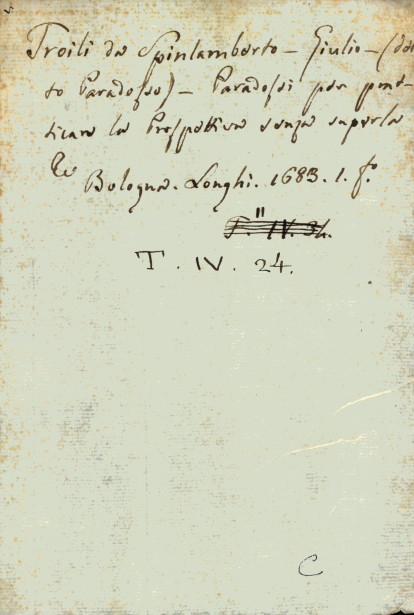 Troili da Spinlamberto - Giulio - (det
to Paradosso) - Paradossi per pra-
ticare la Prospettiva senza saperla
&c Bologna. Longhi. 1683. 1. fo.
T. IV. 34.
T. IV. 24.
C